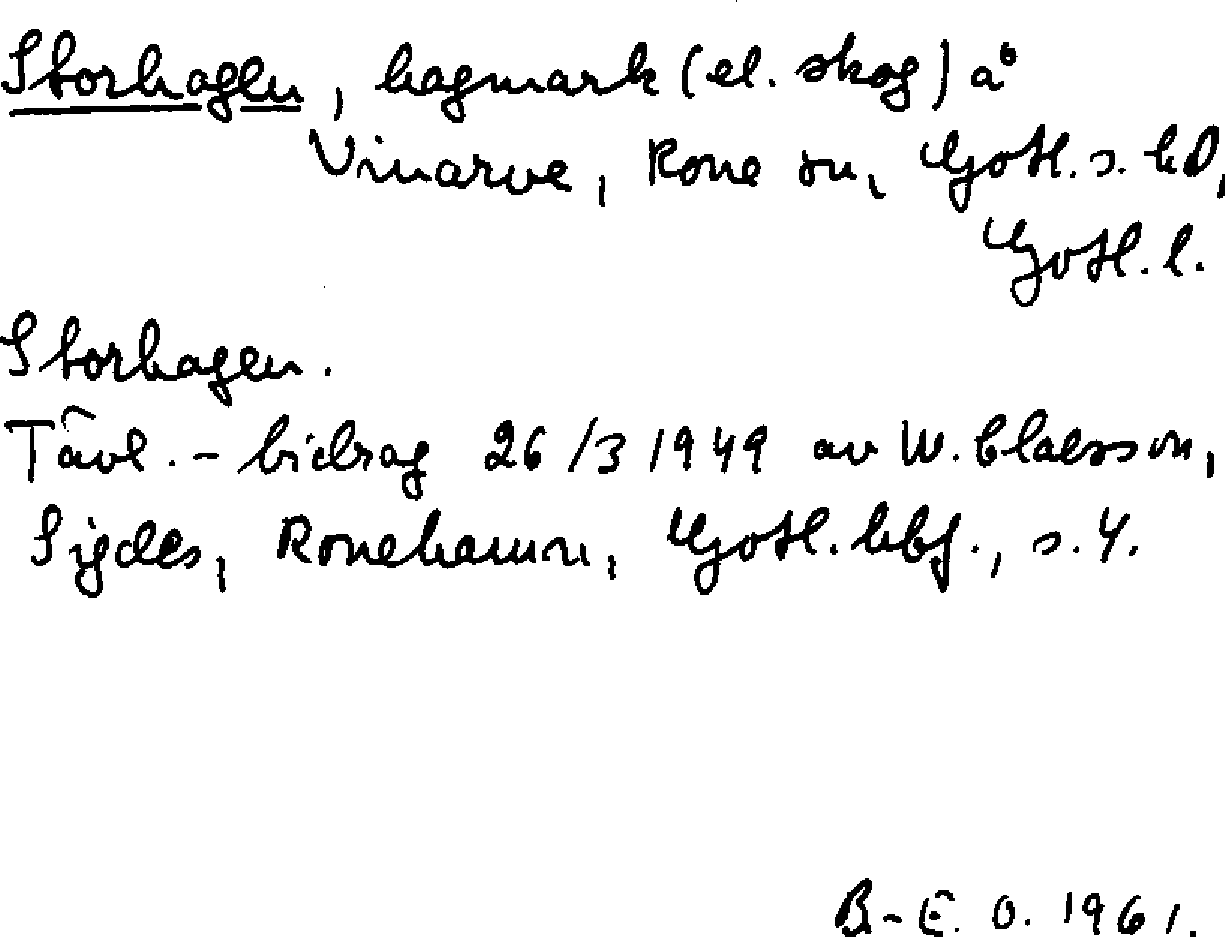 Storhagen, hagmark (el. skog) å
Vinarve, Rone sn, Gotl. s. hd,
Gotl. l.
Storhagen.
Tävl.-bidrag 26/3 1949 av W. Claesson,
Sigdes, Ronehamn, Gotl. hbf., s. 4.
B-E. O. 1961.